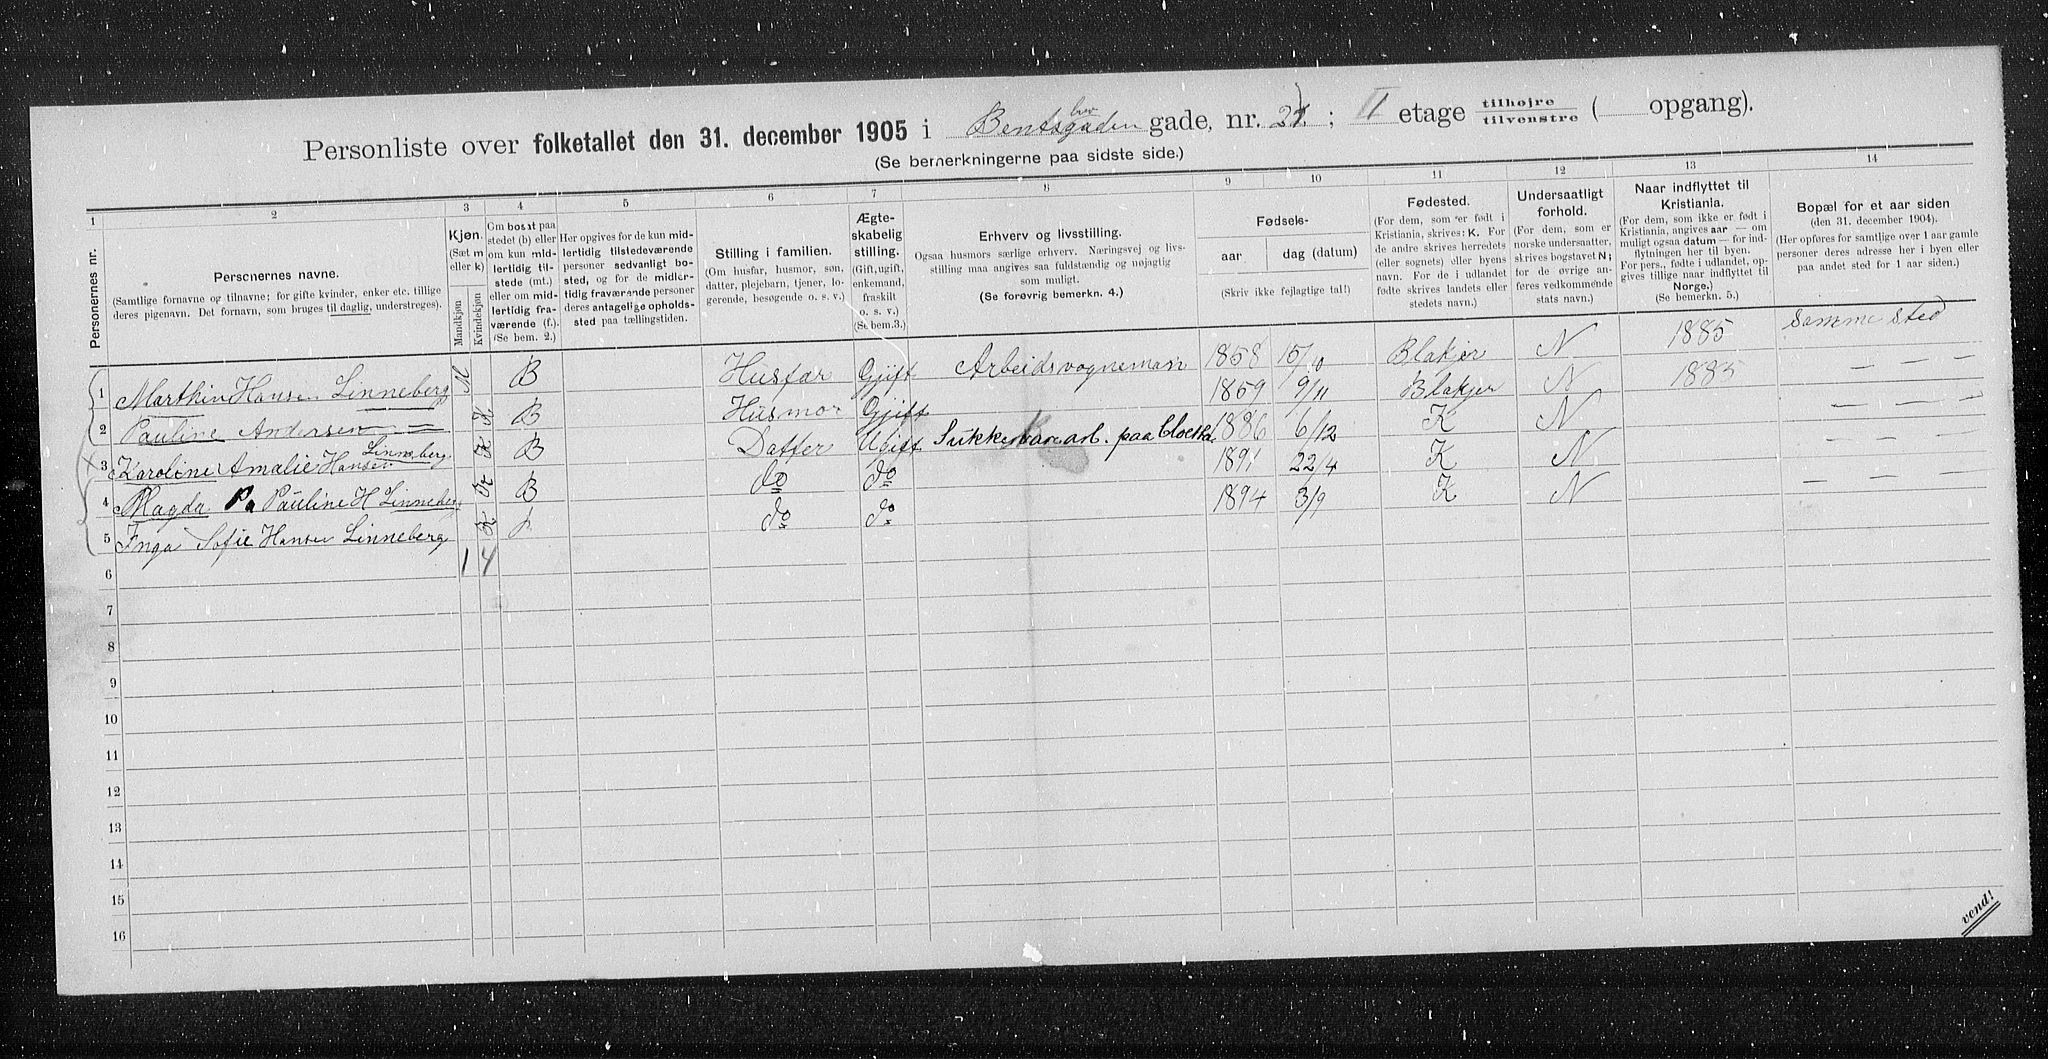 Personliste over folketallet den 31. december 1905 i Bentsegaden gade, nr. 21; II etage tilhøjre / tilvenstre ( opgang).
(Se bemerkningerne paa sidste side.)
1 2 3 4 5 6 7 8 9 10 11 12 13 14
Personernes nr.
Personernes navne.
(Samtlige fornavne og tilnavne; for gifte kvinder, enker etc. tillige
deres pigenavn. Det fornavn, som bruges til daglig, understreges).
Kjøn.
(Sæt m
eller k)
Mandkjøn
Kvindekjøn
Om bosat paa
stedet (b) eller
om kun mid-
lertidig til-
stede (mt.)
eller om mid-
lertidig fra-
værende (f.).
(Se bem. 2.)
Her opgives for de kun mid-
lertidig tilstedeværende
personer sedvanligt bo-
sted, og for de midler-
tidig fraværende personer
deres antagelige opholds-
sted paa tællingstiden.
Stilling i familien.
(Om husfar, husmor, søn,
datter, plejebarn, tjener, lo-
gerende, besøgende o. s. v.)
Ægte-
skabelig
stilling.
(Gift, ugift,
enkemand,
fraskilt
o. s. v.)
(Se bem.3.)
Erhverv og livsstilling.
Ogsaa husmors særlige erhverv. Næringsvej og livs-
stilling maa angives saa fuldstændig og nøjagtig
som muligt.
(Se forøvrig bemerkn. 4.)
Fødsels-
aar
dag (datum)
(Skriv ikke fejlagtige tal!)
Fødested.
(For dem, som er født i
Kristiania, skrives: K. For
de andre skrives herredets
(eller sognets) eller byens
navn. For de i udlandet
fødte skrives landets eller
stedets navn.)
Undersaatligt
forhold.
(For dem, som er
norske undersaatter,
skrives bogstavet N;
for de øvrige an-
føres vedkommende
stats navn.)
Naar indflyttet til
Kristiania.
(For dem, som ikke er født i
Kristiania, angives aar — om
muligt ogsaa datum — for ind-
flytningen her til byen.
For pers., fødte i udlandet, op-
gives tillige naar indflyttet til
Norge.)
(Se bemerkn. 5.)
Bopæl for et aar siden
(den 31. december 1904).
(Her opføres for samtlige over 1 aar gamle
personer deres adresse her i byen eller
paa andet sted for 1 aar siden.)
1 Marthin Hansen Linneberg M B Husfar Gjift Arbeidsvogneman 1858 15/10 Blakjer N 1885 Samme sted
2 Pauline Andersen K B Husmor Gjift 1859 9/11 Blakjer N 1883 — — —
3 Karoline Amalie Hansen Linneberg K B Datter Ugift Sukkervarearb. paa Cloetta 1886 6/12 K N — — —
4 Magda Pauline H Linneberg K B do do 1891 22/4 K N — — —
5 Inga Sofie Hansen Linneberg K b do do 1894 3/9 K N — — —
6 1 4
7
8
9
10
11
12
13
14
15
16
vend!